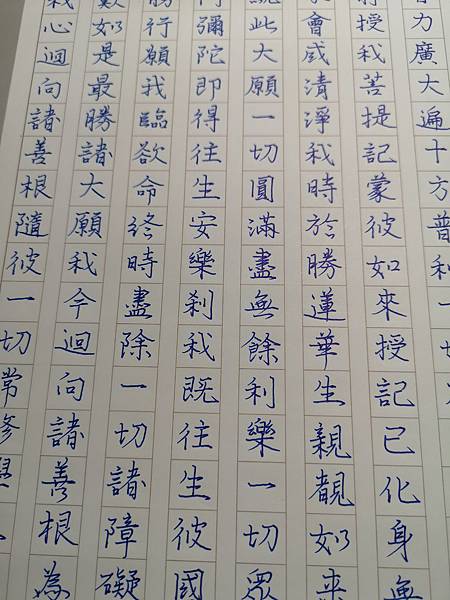 力廣大遍十方普利一切
授我菩提記蒙彼如來授記已化身無
會咸清淨我時於勝蓮華生親覩如來
此大願一切圓滿盡無餘利樂一切眾
彌陀即得往生安樂剎我既往生彼國
行願我臨欲命終時盡除一切諸障礙
如是最勝諸大願我今迴向諸善根為
我心迴向諸善根隨彼一切常修學